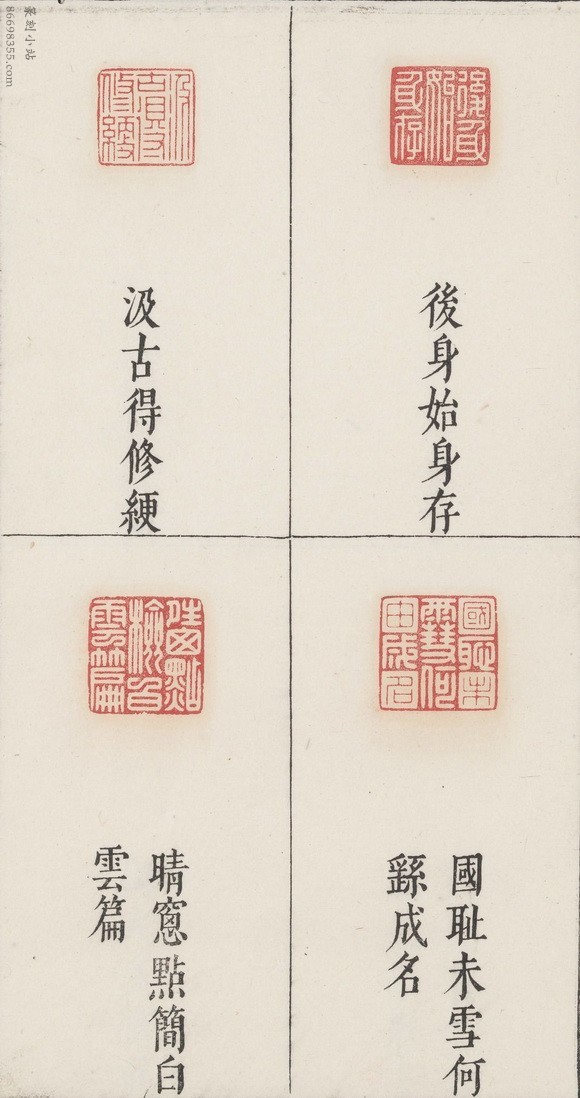 篆刻小站
86698355.com
後身始身存
汲古得修綆
國耻未雪何
繇成名
晴窓點簡白
雲篇